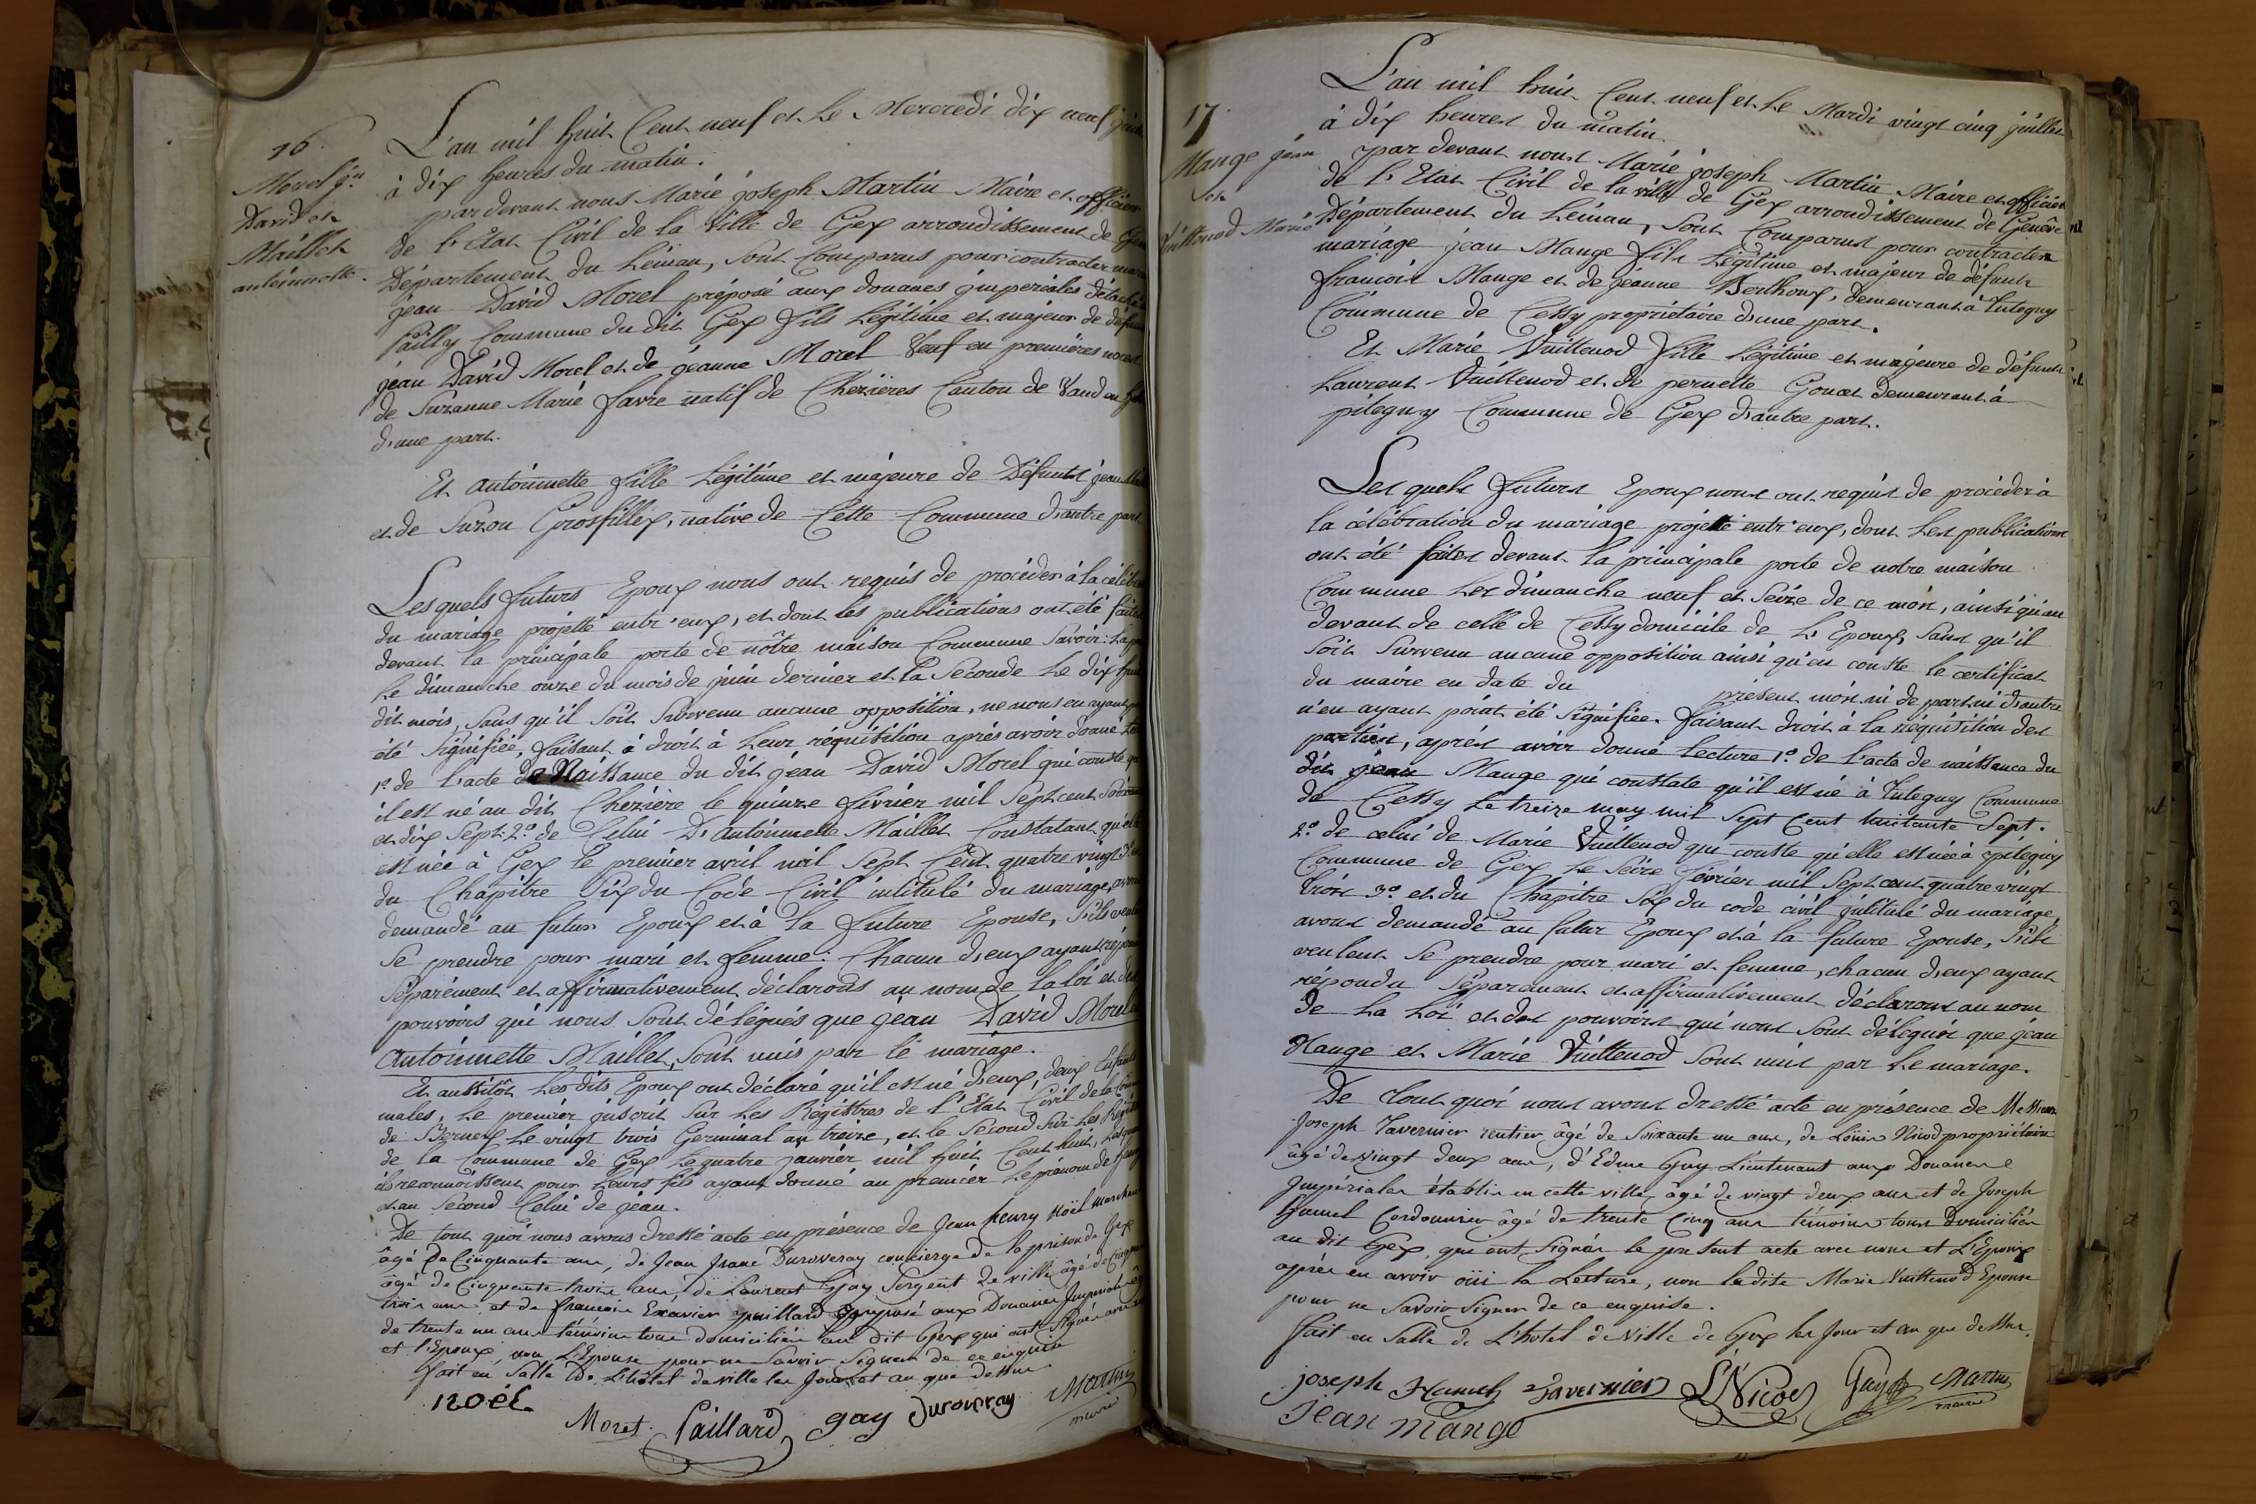 16.
Morel jn
David et
Maillet
antoinette.
L'an mil huit Cent neuf et Le Mercredi dix neuf
à dix heures du matin.
par devant nous Marie joseph Martin Maire et officier
de l'Etat Civil de la Ville de Gex arrondissement de
Département du Leman, Sont Comparus pour contracter
jean David Morel préposé aux douanes jmperiales détaché
Commune du dit Gex fils Légitime et majeur de
jean David Morel et de jeanne Morel Veuf en premières noces
de Suzanne Marie favre natif de Chezières Canton de Vaud en
d'une part.
Et antoinette fille Légitime et majeure de Défunts jean
et de Suzon Grosfillex, native de Cette Commune d'autre part
Lesquels futurs Epoux nous ont requis de procéder à la
du mariage projetté entr'eux, et dont les publications ont été faites
devant la principale porte de nôtre maison Commune Savoir: La
Le dimanche onze du mois de juin dernier et la Seconde Le dix
dit mois, Sans qu'il Soit Survenu aucune opposition, ne nous en ayant
été Signifiée, faisant à droit à Leur réquisition après avoir donné
1º de l'acte de Naissance du dit jean David Morel qui conste
il est né au dit Chezière le quinze février mil Sept cent
et dix Sept. 2º de Celui D'antoinette Maillet Constatant
est née à Gex le premier avril mil Sept Cent quatre vingt
du Chapitre Six du Code Civil intitulé du mariage, avons
demandé au futur Epoux et à la future Epouse, S'ils
Se prendre pour mari et femme: Chacun d'eux ayant
Séparément et affirmativement déclarons au nom de la loi et des
pouvoirs qui nous Sont délégués que jean David Morel
Antoinette Maillet, Sont unis par le mariage.
Et aussitôt Les dits Epoux ont déclaré qu'il est né d'eux, deux Enfants
males, Le premier jnscrit Sur Les Régistres de l'Etat Civil de la
de Bernex Le vingt trois Germinal an treize, et le Second Sur Les
de la Commune de Gex Le quatre janvier mil huit Cent huit,
ils reconnoissent pour Leurs fils ayant donné au premier Le prénom de
et au Second Celui de jean.
De tout quoi nous avons dressé acte en présence de Jean henry Noël
âgé De Cinquante ans, de Jean Isaac Duroveray concierge de la prison de Gex
âgé de Cinquante trois ans, de Laurent Gay Sergent de ville âgé de
trois ans, et de francois Exavier paillard préposé aux Douanes Imperiales
de trente un ans témoins tous domiciliés au dit Gex qui ont Signés avec
et l'Epoux, non L'Epouse pour ne Savoir Signer de ce enquise
fait en Salle De L'hôtel de ville les Jour et an que dessus
noël
Morel
Paillard
gay
Duroveray
Martin
maire
17.
Mange jean
et
Vuillenod Marie
L'an mil huit Cent neuf et Le Mardi vingt cinq juillet
à dix heures du matin
par devant nous Marie joseph Martin Maire et officier
de l'Etat Civil de la ville de Gex arrondissement de Genêve
Département du Leman, Sont Comparus pour contracter
mariage jean Mange fils Légitime et majeur de défunt
francois Mange et de jeanne Berthoux, demeurant à Tutegny
Commune de Cessy propriétaire d'une part.
Et Marie Vuillenod fille Légitime et majeure de défunt
Laurent Vuillenod et de pernette Gonet demeurant à
pitegny Commune de Gex d'autre part.
Les quels futurs Epoux nous ont requis de procéder à
la célébration du mariage projetté entr'eux, dont Les publications
ont été faites devant la principale porte de notre maison
Commune Les dimanche neuf et Seize de ce mois, ainsi qu'au
devant de celle de Cessy domicile de L'Epoux, Sans qu'il
Soit Survenu aucune opposition ainsi qu'en conste le certificat
du maire en date du présent mois ni de part ni d'autre
n'en ayant point été Signifiée. faisant droit à la réquisition des
parties, après avoir donné Lecture 1º de l'acte de naissance du
dit jean Mange qui constate qu'il est né à Tutegny Commune
de Cessy Le treize may mil Sept Cent huitante Sept.
2º de celui de Marie Vuillenod qui conste qu'elle est née à pitegny
Commune de Gex Le Seize fevrier mil Sept cent quatre vingt
trois 3º et du Chapitre Six du code civil jntitulé du mariage,
avons demandé au futur Epoux et à la future Epouse, S'ils
veulent Se prendre pour mari et femme, chacun d'eux ayant
répondu Séparément et affirmativement déclarons au nom
de La Loi et des pouvoirs qui nous Sont délegués que jean
Mange et Marie Vuillenod Sont unis par Le mariage.
De tout quoi nous avons dressé acte en présence de Messieurs
Joseph Tavernier rentier âgé de Soixante un ans, de Loüis Nicod propriétaire
âgé de vingt deux ans, d'Edme Guy Lieutenant aux Douanes
Impériales établie en cette ville, âgé de vingt deux ans et de Joseph
Cordonnier âgé de trente Cinq ans témoins tous Domiciliés
au dit Gex, qui ont Signés le present acte avec nous et L'Epoux
après en avoir oüi la Lecture, non la dite Marie Vuillenod Epouse
pour ne Savoir Signer de ce enquise.
fait en Salle de L'hotel de Ville de Gex les Jour et an que dessus.
joseph
Tavernier
Ls Nicod
Martin
maire
jean mange